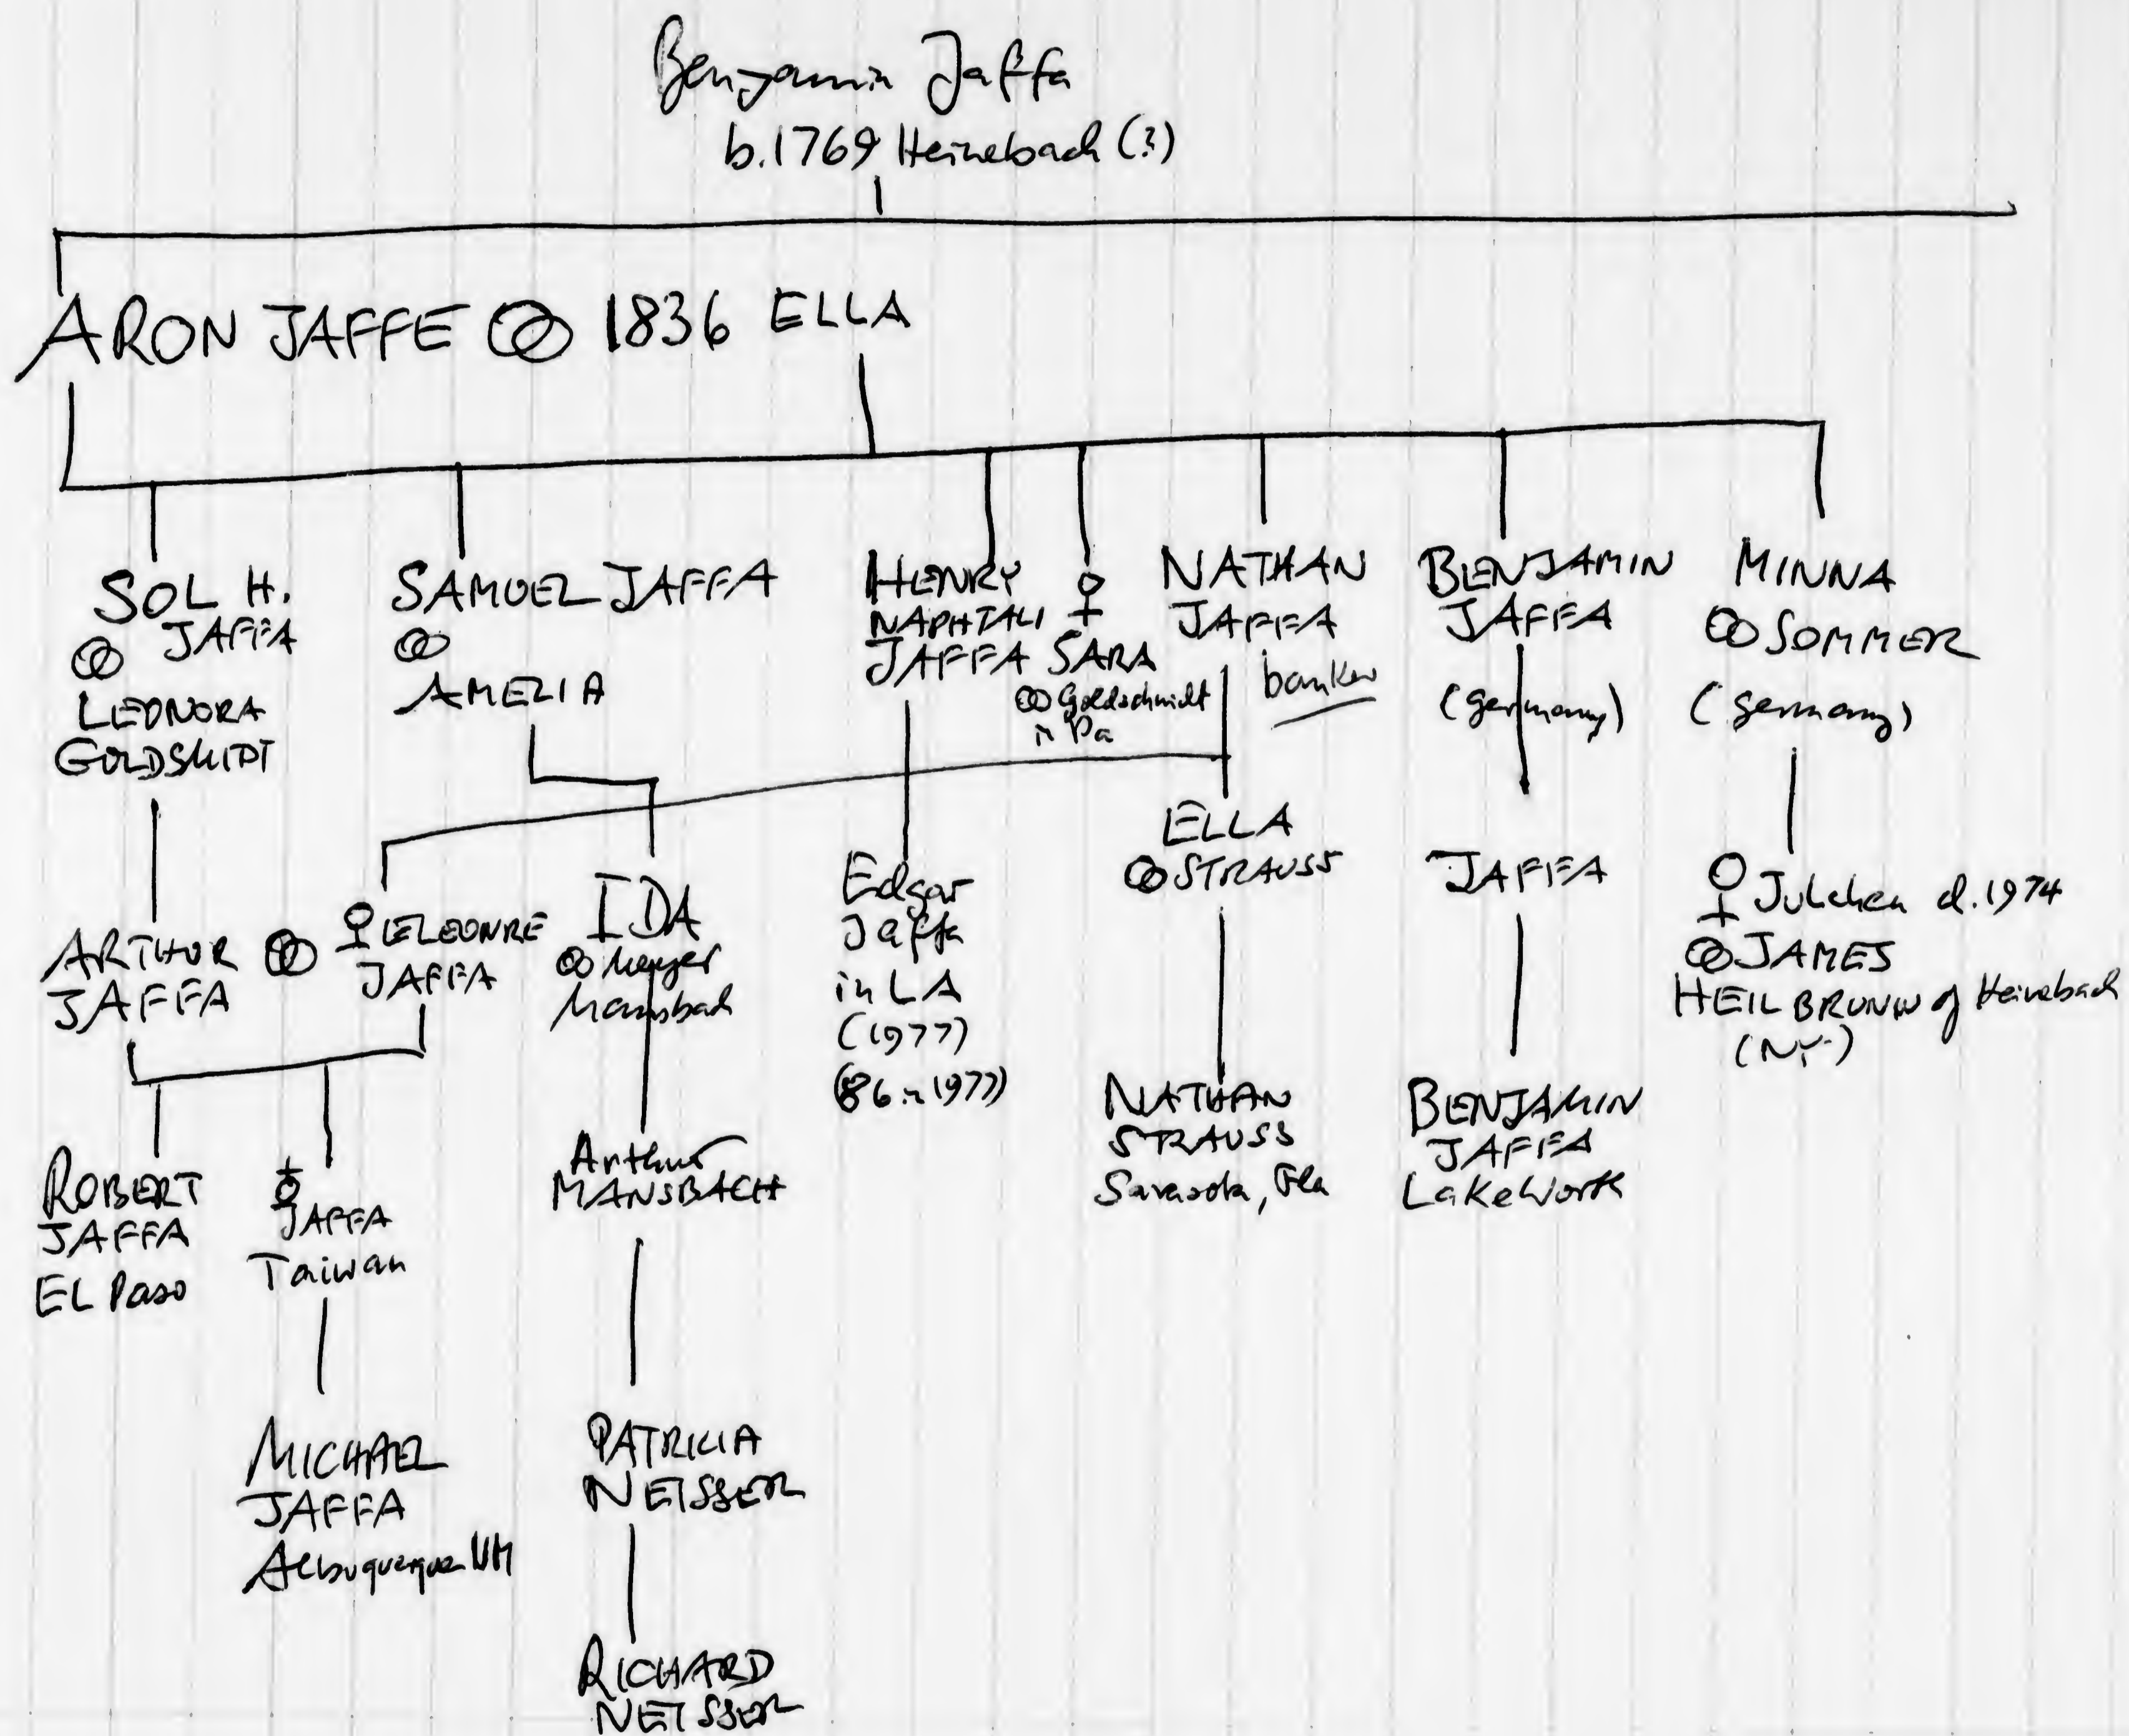 Benjamin Jaffa
b.1769 Heinebach (?)
ARON JAFFE ⚭ 1836 ELLA
SOL H.
JAFFA
⚭
LEONORA
GOLDSMIDT
SAMUEL JAFFA
⚭
AMELIA
HENRY
NAPHTALI
JAFFA
♀
SARA
⚭ Goldschmidt
in Pa
NATHAN
JAFFA
banker
BENJAMIN
JAFFA
(Germany)
MINNA
⚭ SOMMER
(Germany)
ARTHUR ⚭
JAFFA
♀
JAFFA
IDA
⚭ Meyer
Mansbach
Edgar
Jaffa
in LA
(1977)
(86 in 1977)
ELLA
⚭ STRAUSS
JAFFA
♀ Julchen d.1974
⚭ JAMES
HEILBRUNN of Heinebach
(NY)
ROBERT
JAFFA
EL Paso
♀
JAFFA
Taiwan
Arthur
MANSBACH
NATHAN
STRAUSS
Sarasota, Fla
BENJAMIN
JAFFA
Lake Worth
MICHAEL
JAFFA
Albuquerque NM
PATRICIA
NEISSER
RICHARD
NEISSER